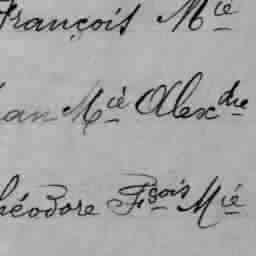 François Mié
ean Mié Alexdre
Théodore Fsois Mié